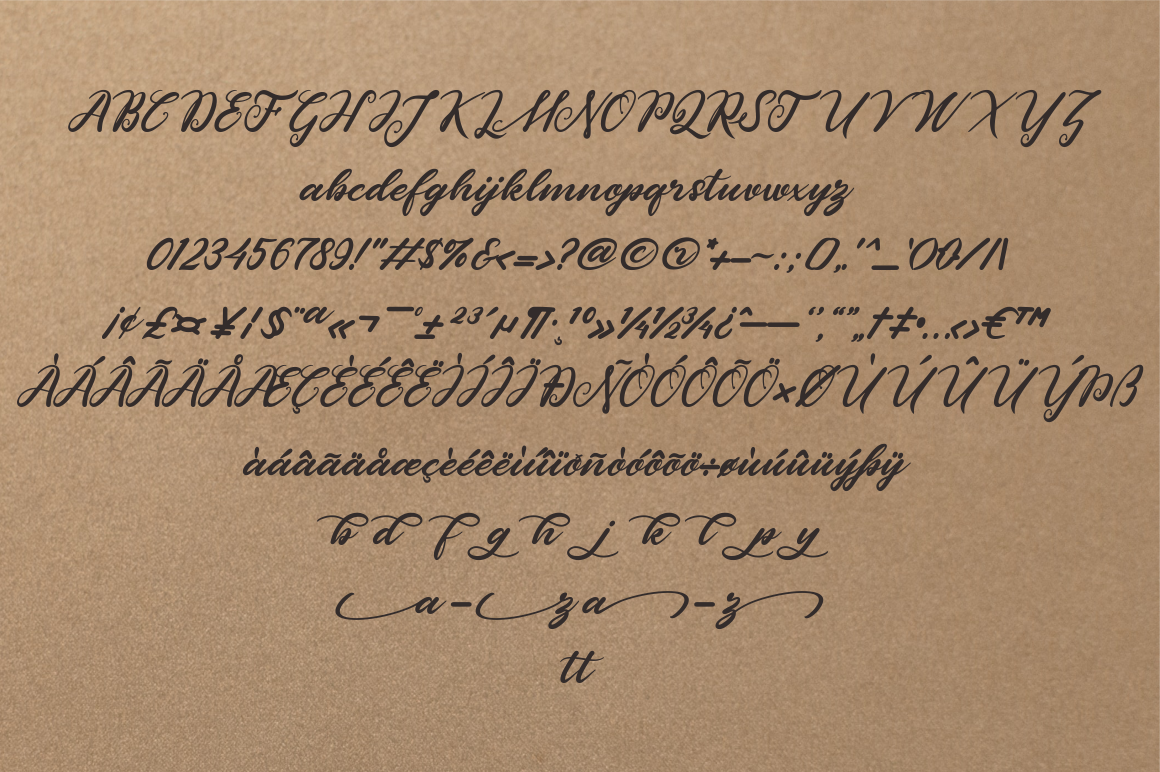 ABCDEFGHIJKLMNOPQRSTUVWXYZ
abcdefghijklmnopqrstuvwxyz
0123456789!"#$%&<=>?@©®*+-~:;(),.'^_`[]{}/|\
¡¢£¤¥¦§¨ª«¬¯°±²³´µ¶·¸¹º»¼½¾¿ˆ–—‘’‚“”„†‡•…‹›€™
ÀÁÂÃÄÅÆÇÈÉÊËÌÍÎÏÐÑÒÓÔÕÖ×ØÙÚÛÜÝÞß
àáâãäåæçèéêëìíîïðñòóôõö÷øùúûüýþÿ
b d f g h j k l p y
a-z a-z
tt